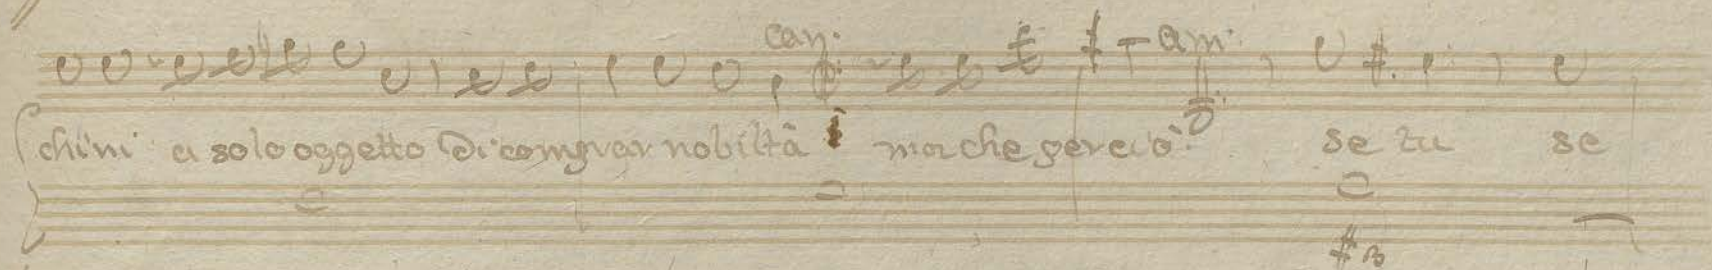 Can. Am.
chini a solo oggetto di comprar nobiltà ma che perciò? se tu se